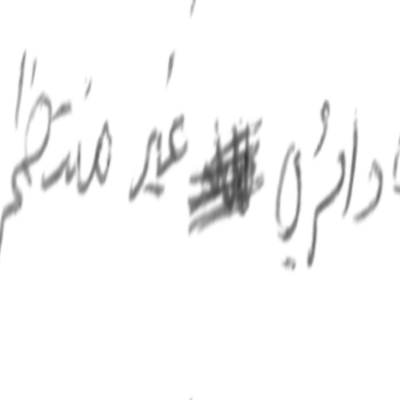 دائري غير منتظم